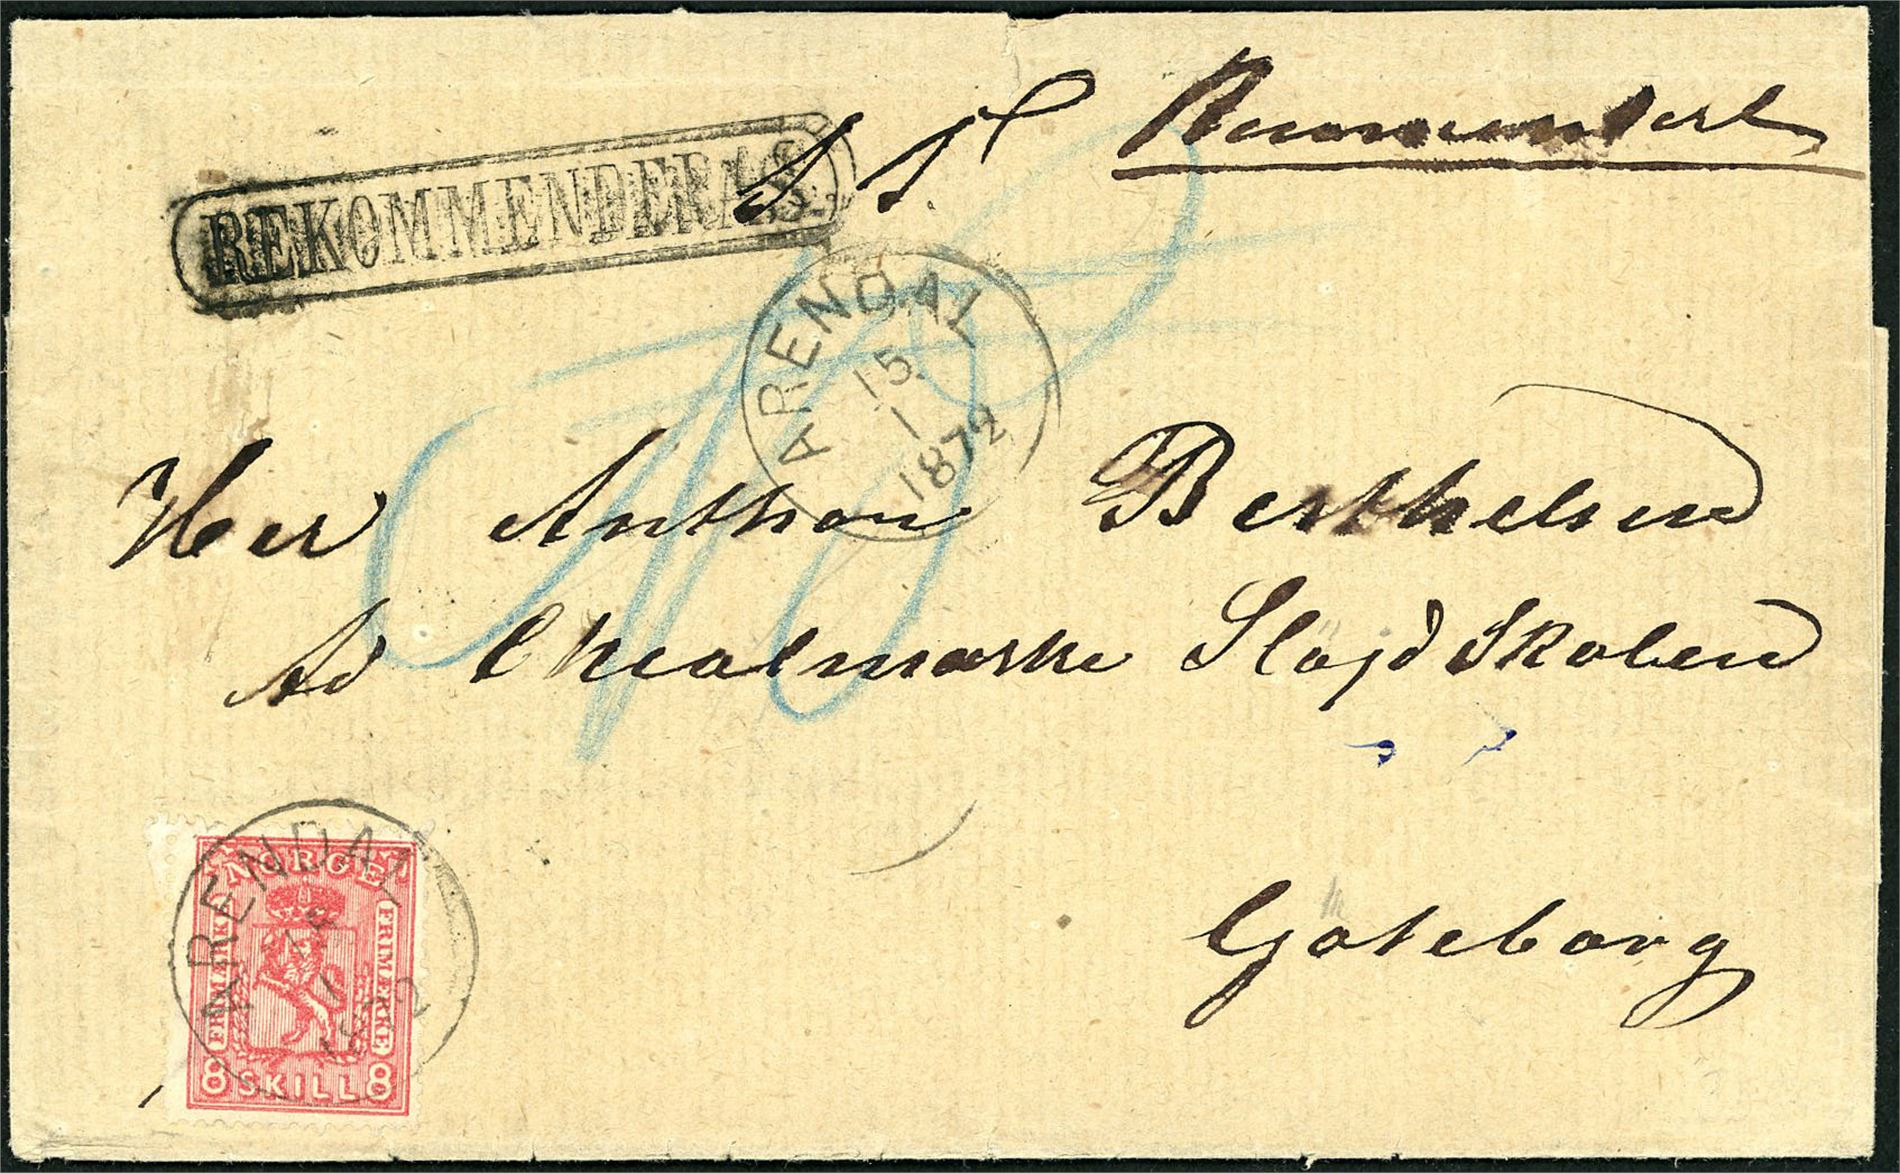 S. T.
Recommenderet
REKOMMENDERAS
ARENDAL
15
1
1872
Her Anthon Berthelsen
Ad Chalmerske Slöjd Skolen
Göteborg
ARENDAL
15
1
1872
NORGE
FRIMÆRKE
FRIMÆRKE
8 SKILL 8